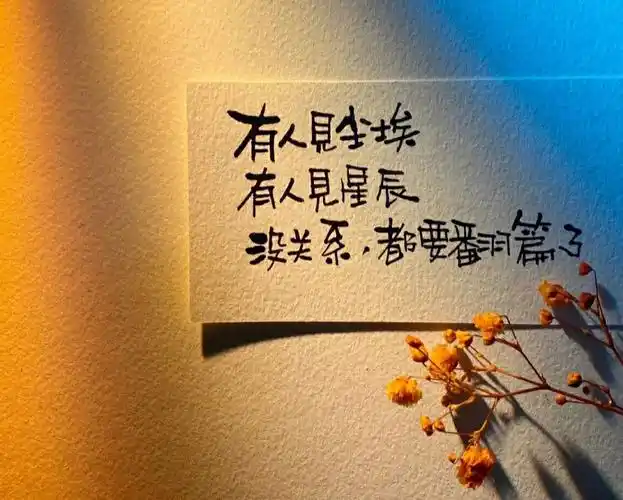 有人見尘埃
有人見星辰
没关系，都要翻篇了